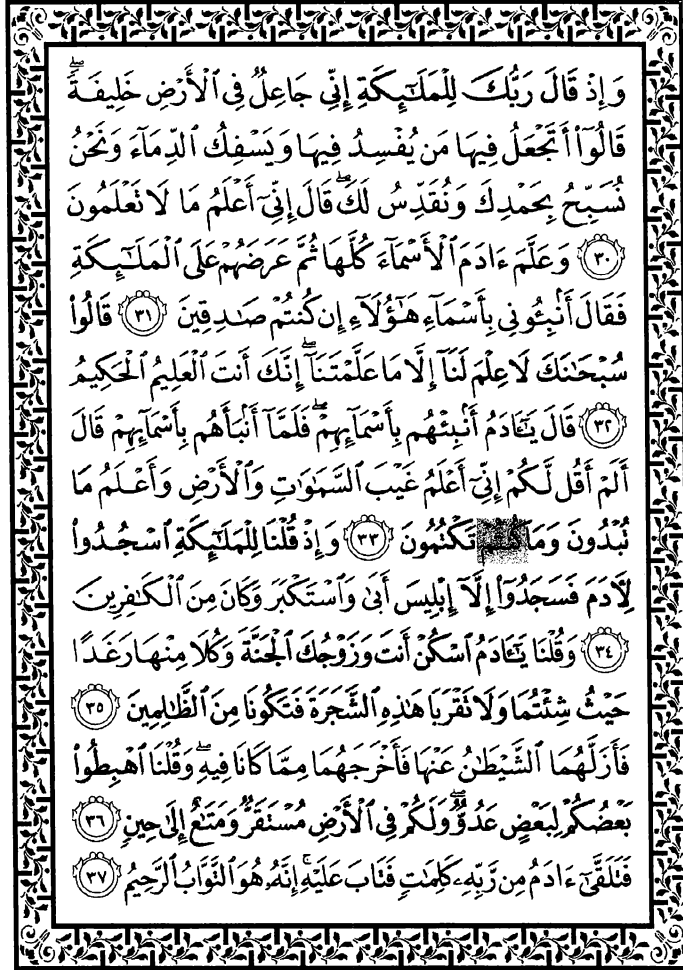 وَإِذْ قَالَ رَبُّكَ لِلْمَلَٰٓئِكَةِ إِنِّي جَاعِلٌ فِي ٱلْأَرْضِ خَلِيفَةً ۖ
قَالُوٓا۟ أَتَجْعَلُ فِيهَا مَن يُفْسِدُ فِيهَا وَيَسْفِكُ ٱلدِّمَآءَ وَنَحْنُ
نُسَبِّحُ بِحَمْدِكَ وَنُقَدِّسُ لَكَ ۖ قَالَ إِنِّيٓ أَعْلَمُ مَا لَا تَعْلَمُونَ
٣٠ وَعَلَّمَ ءَادَمَ ٱلْأَسْمَآءَ كُلَّهَا ثُمَّ عَرَضَهُمْ عَلَى ٱلْمَلَٰٓئِكَةِ
فَقَالَ أَنۢبِـُٔونِي بِأَسْمَآءِ هَٰٓؤُلَآءِ إِن كُنتُمْ صَٰدِقِينَ ٣١ قَالُوا۟
سُبْحَٰنَكَ لَا عِلْمَ لَنَآ إِلَّا مَا عَلَّمْتَنَآ ۖ إِنَّكَ أَنتَ ٱلْعَلِيمُ ٱلْحَكِيمُ
٣٢ قَالَ يَٰٓـَٔادَمُ أَنۢبِئْهُم بِأَسْمَآئِهِمْ ۖ فَلَمَّآ أَنۢبَأَهُم بِأَسْمَآئِهِمْ قَالَ
أَلَمْ أَقُل لَّكُمْ إِنِّيٓ أَعْلَمُ غَيْبَ ٱلسَّمَٰوَٰتِ وَٱلْأَرْضِ وَأَعْلَمُ مَا
تُبْدُونَ وَمَا كُنتُمْ تَكْتُمُونَ ٣٣ وَإِذْ قُلْنَا لِلْمَلَٰٓئِكَةِ ٱسْجُدُوا۟
لِـَٔادَمَ فَسَجَدُوٓا۟ إِلَّآ إِبْلِيسَ أَبَىٰ وَٱسْتَكْبَرَ وَكَانَ مِنَ ٱلْكَٰفِرِينَ
٣٤ وَقُلْنَا يَٰٓـَٔادَمُ ٱسْكُنْ أَنتَ وَزَوْجُكَ ٱلْجَنَّةَ وَكُلَا مِنْهَا رَغَدًا
حَيْثُ شِئْتُمَا وَلَا تَقْرَبَا هَٰذِهِ ٱلشَّجَرَةَ فَتَكُونَا مِنَ ٱلظَّٰلِمِينَ ٣٥
فَأَزَلَّهُمَا ٱلشَّيْطَٰنُ عَنْهَا فَأَخْرَجَهُمَا مِمَّا كَانَا فِيهِ ۖ وَقُلْنَا ٱهْبِطُوا۟
بَعْضُكُمْ لِبَعْضٍ عَدُوٌّ ۖ وَلَكُمْ فِي ٱلْأَرْضِ مُسْتَقَرٌّ وَمَتَٰعٌ إِلَىٰ حِينٍ ٣٦
فَتَلَقَّىٰٓ ءَادَمُ مِن رَّبِّهِۦ كَلِمَٰتٍ فَتَابَ عَلَيْهِ ۚ إِنَّهُۥ هُوَ ٱلتَّوَّابُ ٱلرَّحِيمُ ٣٧